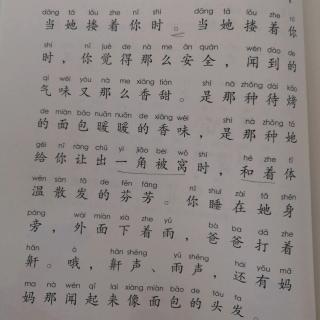 dāng tā lǒu zhe nǐ shí dāng tā lǒu zhe nǐ
当她搂着你时。当她搂着你
shí nǐ jué de nà me ān quán wén dào de
时，你觉得那么安全，闻到的
qì wèi yòu nà me xiāng tián shì nà zhǒng dài kǎo
气味又那么香甜。是那种待烤
de miàn bāo nuǎn nuǎn de xiāng wèi shì nà zhǒng tā
的面包暖暖的香味，是那种她
gěi nǐ ràng chū yì jiǎo bèi wō shí hé zhe tǐ
给你让出一角被窝时，和着体
wēn sàn fā de fēn fāng nǐ shuì zài tā shēn
温散发的芬芳。你睡在她身
páng wài miàn xià zhe yǔ bà ba dǎ zhe
旁，外面下着雨，爸爸打着
hān ò hān shēng yǔ shēng hái yǒu mā
鼾。哦，鼾声、雨声，还有妈
ma nà wén qǐ lái xiàng miàn bāo de tóu fa
妈那闻起来像面包的头发。